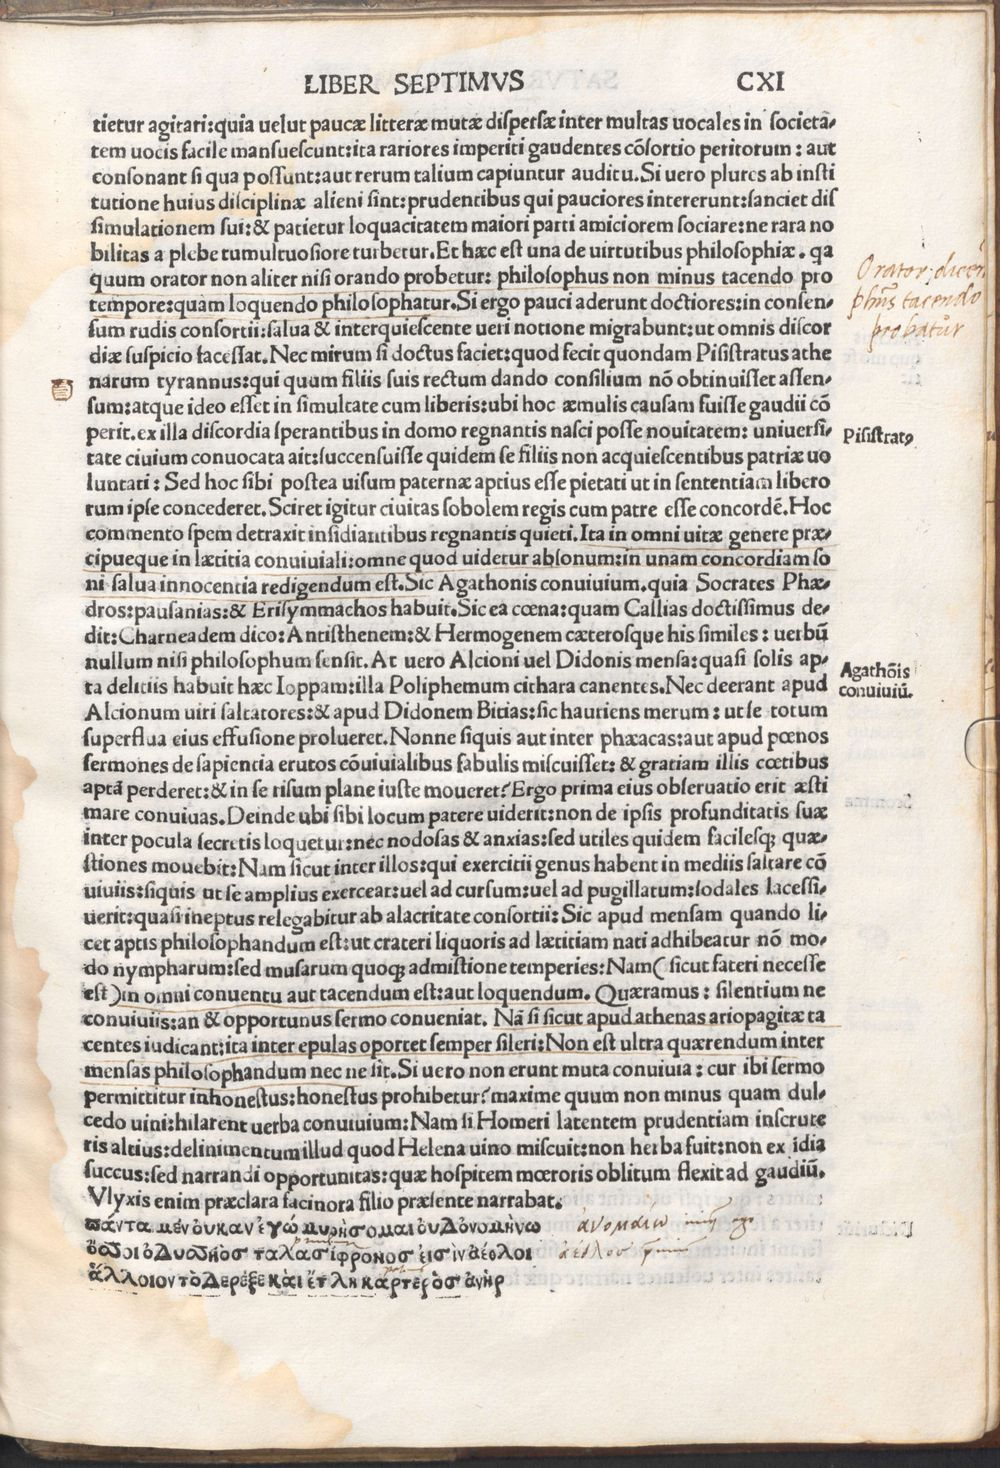 LIBER SEPTIMVS CXI
tietur agitari:quia uelut paucæ litteræ mutæ dispersæ inter multas uocales in societã-
tem uocis facile mansuescunt:ita rariores imperiti gaudentes cõsortio peritorum : aut
consonant si qua possunt:aut rerum talium capiuntur auditu.Si uero plures ab insti
tutione huius disciplinæ alieni sint:prudentibus qui pauciores intererunt:sanciet dis
simulationem sui:& patietur loquacitatem maiori parti amiciorem sociare:ne rara no
bilitas a plebe tumultuosiore turbetur.Et hæc est una de uirtutibus philosophiæ. qa
quum orator non aliter nisi orando probetur: philosophus non minus tacendo pro
tempore:quàm loquendo philosophatur.Si ergo pauci aderunt doctiores:in consen-
sum rudis consortii:salua & interquiescente ueri notione migrabunt:ut omnis discor
diæ suspicio facessat.Nec mirum si doctus faciet:quod fecit quondam Pisistratus athe
narum tyrannus:qui quum filiis suis rectum dando consilium nõ obtinuisset assen-
sum:atque ideo esset in simultate cum liberis:ubi hoc æmulis causam fuisse gaudii cõ
perit.ex illa discordia sperantibus in domo regnantis nasci posse nouitatem: uniuersi-
tate ciuium conuocata ait:succensuisse quidem se filiis non acquiescentibus patriæ uo
luntati: Sed hoc sibi postea uisum paternæ aptius esse pietati ut in sententiam libero
rum ipse concederet.Sciret igitur ciuitas sobolem regis cum patre esse concordẽ.Hoc
commento spem detraxit insidiantibus regnantis quieti.Ita in omni uitæ genere præ-
cipueque in lætitia conuiuiali:omne quod uidetur absonum:in unam concordiam so
ni salua innocentia redigendum est.Sic Agathonis conuiuium.quia Socrates Phæ-
dros:pausanias:& Erisymmachos habuit.Sic ea cœna:quam Callias doctissimus de-
dit:Charneadem dico:Antisthenem:& Hermogenem cæterosque his similes: uerbũ
nullum nisi philosophum sensit.At uero Alcioni uel Didonis mensa:quasi solis ap-
ta delitiis habuit hæc Ioppam:illa Poliphemum cithara canentes.Nec deerant apud
Alcionum uiri saltatores:& apud Didonem Bitias:sic hauriens merum: ut se totum
superflua eius effusione prolueret.Nonne siquis aut inter phæacas:aut apud pœnos
sermones de sapiencia erutos cõuiuialibus fabulis miscuisset: & gratiam illis cœtibus
aptã perderet:& in se risum plane iuste moueret?Ergo prima eius obseruatio erit æsti
mare conuiuas.Deinde ubi sibi locum patere uiderit:non de ipsis profunditatis suæ
inter pocula secretis loquetur:nec nodosas & anxias:sed utiles quidem facilesq; quæ-
stiones mouebit:Nam sicut inter illos:qui exercitii genus habent in mediis saltare cõ
uiuiis:siquis ut se amplius exerceat:uel ad cursum:uel ad pugillatum:sodales lacessi-
uerit:quasi ineptus relegabitur ab alacritate consortii: Sic apud mensam quando li-
cet aptis philosophandum est:ut crateri liquoris ad lætitiam nati adhibeatur nõ mo-
do nympharum:sed musarum quoq; admistione temperies:Nam( sicut fateri necesse
est )in omni conuentu aut tacendum est:aut loquendum. Quæramus: silentium ne
conuiuiis:an & opportunus sermo conueniat. Nã si sicut apud athenas ariopagitæ ta
centes iudicant:ita inter epulas oportet semper sileri:Non est ultra quærendum inter
mensas philosophandum nec ne sit.Si uero non erunt muta conuiuia: cur ibi sermo
permittitur inhonestus:honestus prohibetur?maxime quum non minus quam dul-
cedo uini:hilarent uerba conuiuium:Nam si Homeri latentem prudentiam inscrute
ris altius:delinimentum illud quod Helena uino miscuit:non herba fuit:non ex ĩdia
succus:sed narrandi opportunitas:quæ hospitem mœroris oblitum flexit ad gaudiũ.
Vlyxis enim præclara facinora filio præsente narrabat.
πάντα μὲν ουκ αν ἐγώ μυρησομαι ουδ ονομήνω
ὅσσοι οδυσσῆος ταλασίφρονος εισὶν αέθλοι
ἄλλοιον τὸδ ερεξε καὶ ἔτλη καρτερὸσ ἀνὴρ
Orator; dicen.
phũs tacendo
probatur
Pisistratꝯ
Agathõis
conuiuiũ.